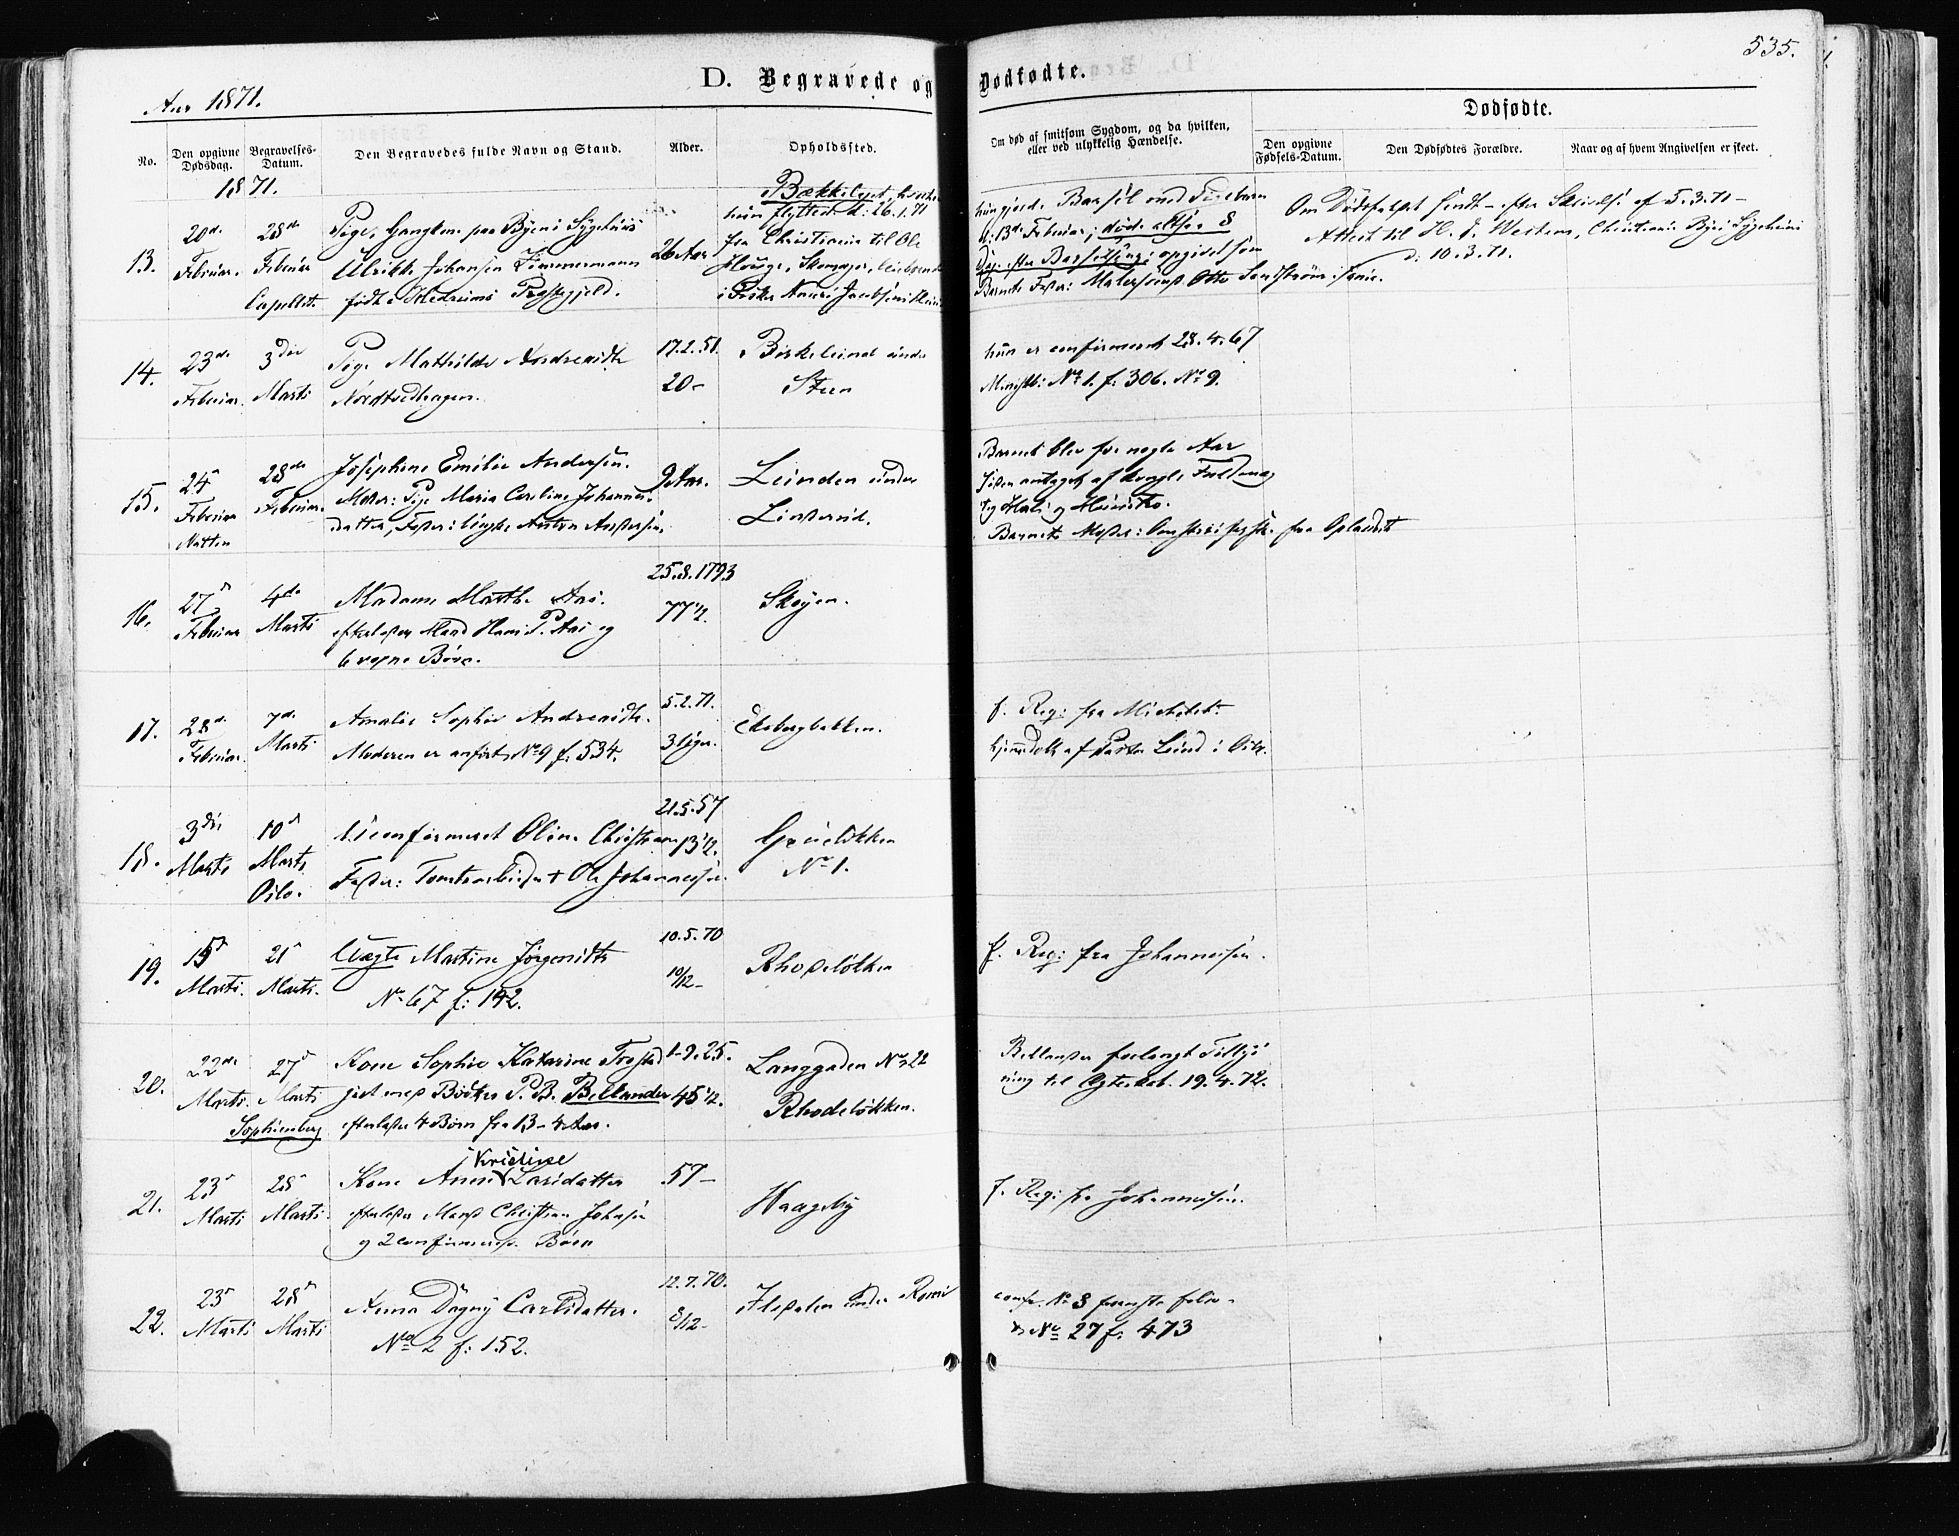 535.
D. Begravede og Dødfødte.
Aar 1871.
Dødfødte.
No.
Den opgivne Dødsdag.
Begravelses-Datum.
Den Begravedes fulde Navn og Stand.
Alder.
Opholdssted.
Om død af smitsom Sygdom, og da hvilken,
eller ved ulykkelig Hændelse.
Den opgivne Fødsels-Datum.
Den Dødfødtes Forældre.
Naar og af hvem Angivelsen er skeet.
1871.
13.
20de Februar.
28de Februar
Pige, Gangkone paa Byens Sygehuus
Ulrikke Johansen Timmermann
født i Præstegjeld.
26 Aar
hun flyttede d: 26.1.71
fra Christiania til Ole
Houge, Skomager,
hun gjorde Barsel med
d: 13de Februar, døde altsaa 8
Dage efter Barselseng; opgivet som
Barnets Fader: Malersvend Otto Sandstrøm
Om Dødsfaldet sendt efter Skrivelse af 5.3.71 -
Attest til H. J. Christiania Byes Sygehuus
d: 10.3.71.
14.
23de Februar.
3die Marts
Pige Mathilde Andreasdtr
Nordtvedhagen.
17.2.51.
20-
Birkelund under
Steen
hun er confirmeret 28.4.67
Ministb: No 1. f. 306. No 9.
15.
24 Februar
Natten
28de Februar.
Josephine Emilie Andersen.
Moder: Pige Maria Caroline Johannes-
datter, Fader: Ungk. Anton Andersen.
9 Aar.
Lunden under
Linderud.
Barnet blev for nogle Aar
siden antaget af
Barnets Moder: fra Oplandet
16.
27d Februar
4de Marts
Madame Marthe Aas.
efterlader Mand Hans P. Aas og
6 voxne Børn.
25.8.1793
77 1/2.
Skøyen.
17.
28de Februar.
7de Marts
Amalie Sophie Andreasdtr.
Moderen er anført No 9 f. 534.
5.2.71.
3 Uger.
Ekebergbakken.
f. Reg: fra Michelet.
hjemmedøbt af Pastor Lund i Oslo.
18.
3die Marts
10d Marts
Oslo.
Uconfirmeret Oline Christiane
Fader: Tomtearbeider Ole Johannesen.
21.5.57
13 1/2.
Grüneløkken
No 1.
19.
15d Marts.
21d Marts.
Uægte Martine Jørgensdtr
No 67 f: 142.
10.5.70
10/12-
Rhodeløkken
f. Reg: fra Johannesen.
20.
22de Marts.
27d Marts
Sophienberg
Kone Sophie Katarine Trosdal
gift med Bødker P. B. Bellander
efterlader 4 Børn fra 13-4 Aar.
1-9.25.
45 1/2.
Langgaden No 22
Rhodeløkken.
Bellander forlangt Tillys-
ning til Ægteskab. 19.4.72.
21.
23d Marts
28d Marts.
Kone Anne Kristine Larsdatter
efterlader Mand Christian Johnsen
og 2 confirmerede Børn
57-
Haageby
f. Reg: fra Johannesen.
22.
23d Marts
28d Marts
Anna Dagny Carlsdatter.
No 2 f: 152.
12.7.70.
8/12-
under
confr. No 3 forrige folio -
& No 27 f: 473